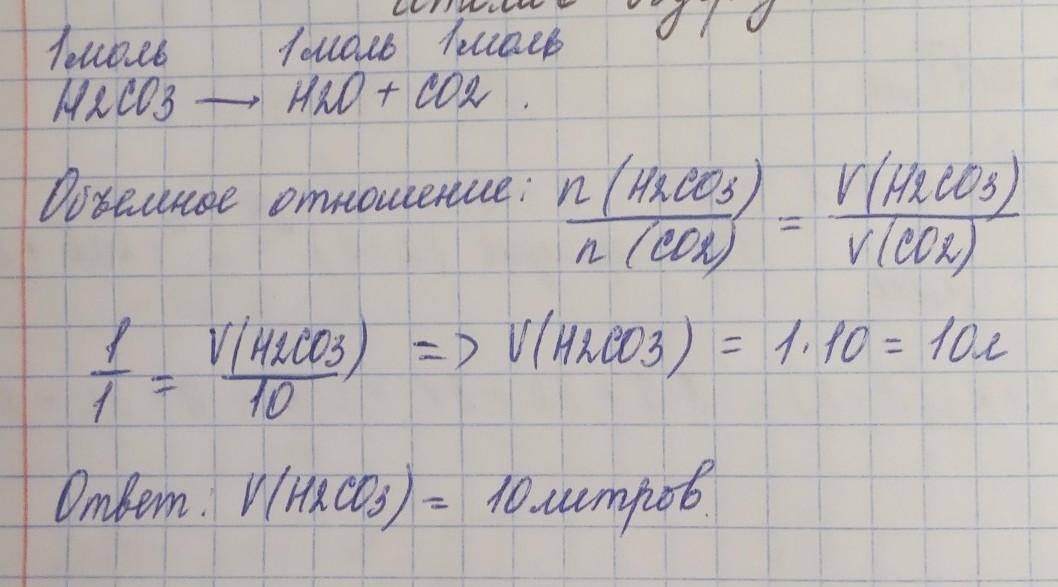 1 моль 1 моль 1 моль
H2CO3 → H2O + CO2 .
Объемное отношение: n (H2CO3) / n (CO2) = V(H2CO3) / V(CO2)
1/1 = V(H2CO3) / 10 => V(H2CO3) = 1 · 10 = 10л
Ответ: V(H2CO3) = 10 литров.